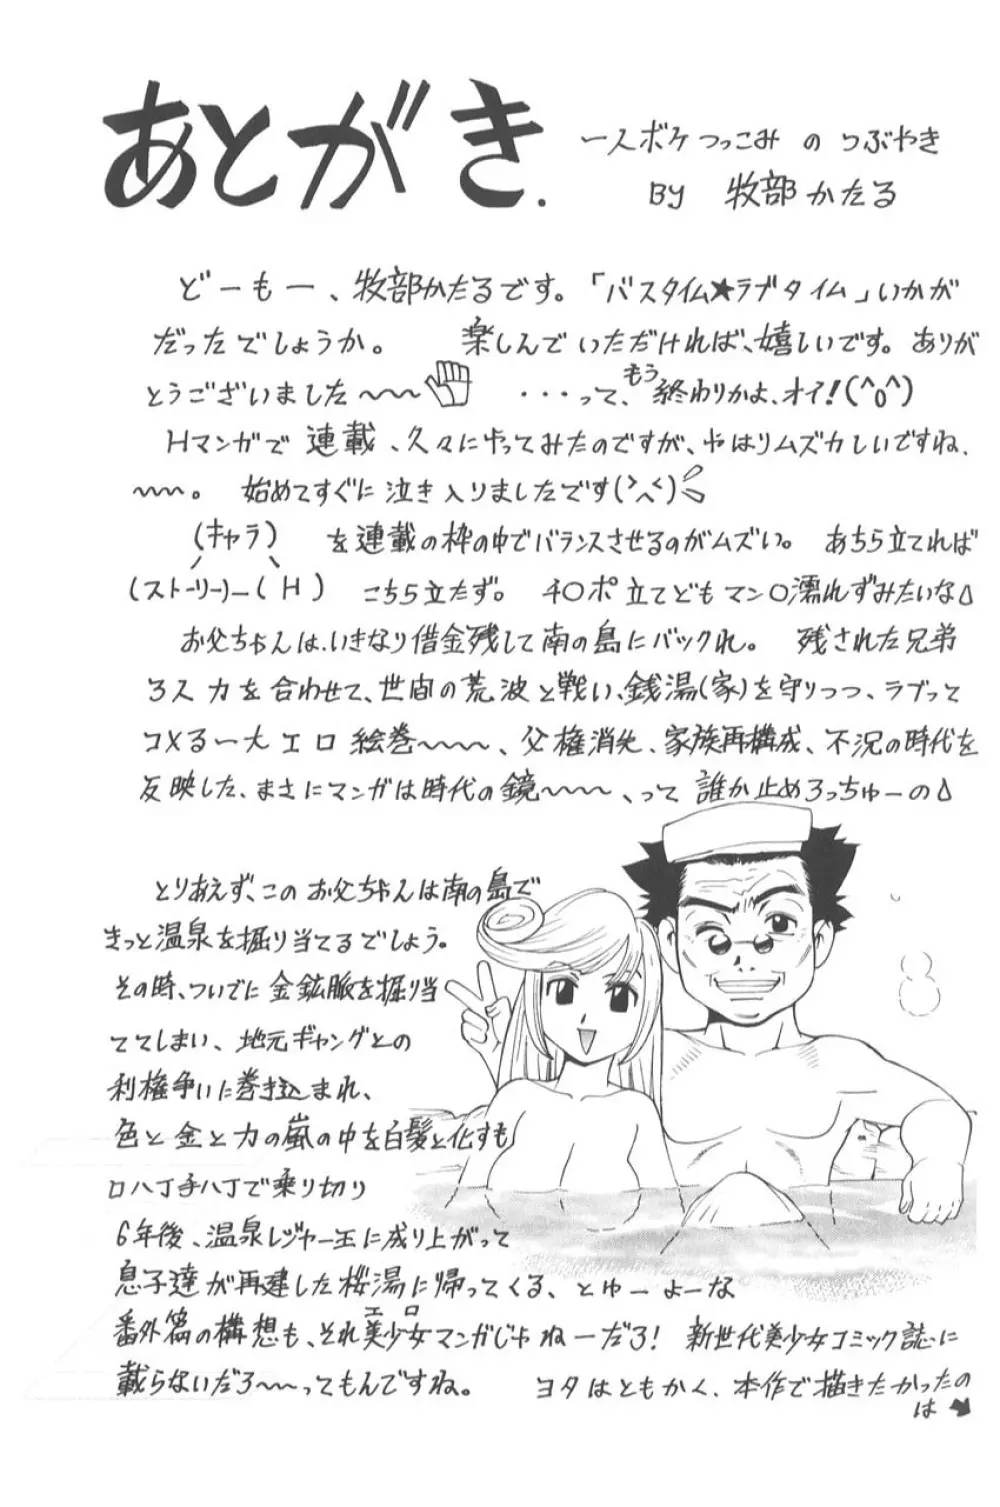 あとがき.
一人ボケつっこみ の つぶやき
BY 牧部かたる
どーもー、牧部かたるです。「バスタイム★ラブタイム」いかが
だったでしょうか。 楽しんでいただければ、嬉しいです。ありが
とうございました〜〜 ・・・って、もう終わりかよ、オイ!(^o^)
Hマンガで連載、久々にやってみたのですが、やはりムズカしいですね、
〜〜。 始めてすぐに泣き入りましたです(>へ<)
(キャラ) を連載の枠の中でバランスさせるのがムズい。 あちら立てれば
(ストーリー)ー(H) こちら立たず。 チ〇ポ立てどもマン〇濡れずみたいな
お父ちゃんは、いきなり借金残して南の島にバックれ。 残された兄弟
3人力を合わせて、世間の荒波と戦い、銭湯(家)を守りつつ、ラブって
コメる一大エロ絵巻〜〜〜、父権消失、家族再構成、不況の時代を
反映した、まさにマンガは時代の鏡〜〜〜、って 誰か止めろっちゅーの
とりあえず、この お父ちゃんは南の島で
きっと温泉を掘り当てるでしょう。
その時、ついでに金鉱脈を掘り当
ててしまい、地元ギャングとの
利権争いに巻き込まれ、
色と金と力の嵐の中を白髪と化すも
口八丁手八丁で乗り切り
6年後、温泉レジャー王に成り上がって
息子達が再建した桜湯に帰ってくる、とゆーよーな
番外篇の構想も、それ美少女エロマンガじゃねーだろ! 新世代美少女コミック誌に
載らないだろ〜〜ってもんですね。 ヨタはともかく、本作で描きたかったの
は➘